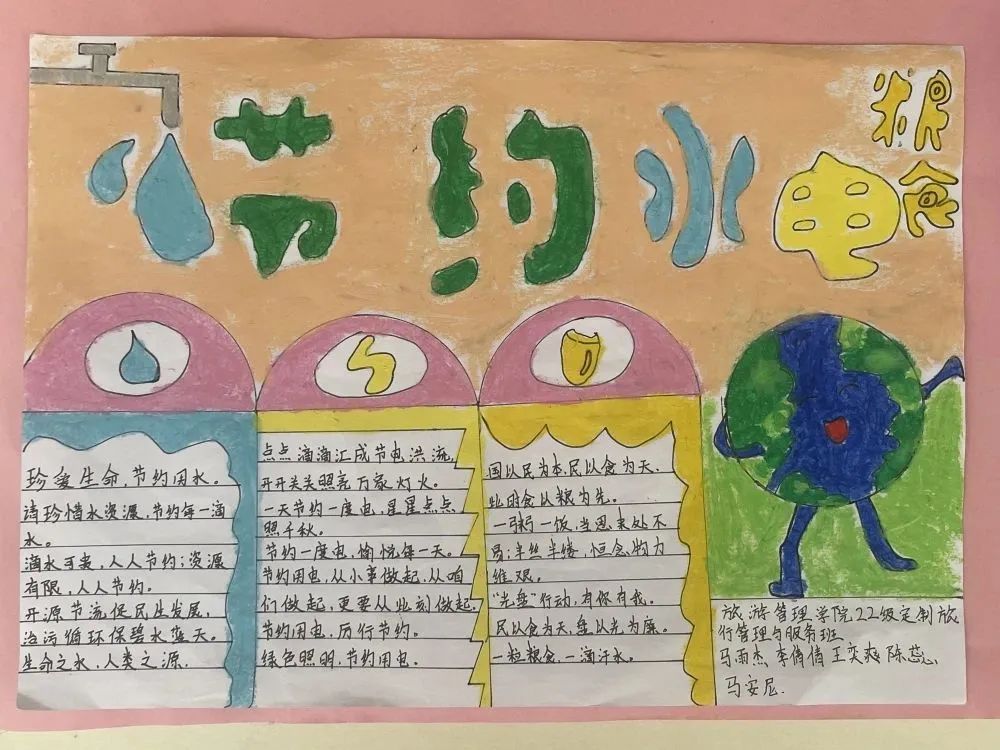 节约水电
粮食
珍爱生命，节约用水。
请珍惜水资源，节约每一滴
水。
滴水可贵，人人节约；资源
有限，人人节约。
开源节流促民生发展，
治污循环保碧水蓝天。
生命之水，人类之源.
点点滴滴汇成节电洪流，
开开关关照亮万家灯火。
一天节约一度电，星星点点
照千秋。
节约一度电，愉悦每一天。
节约用电，从小事做起，从咱
们做起，更要从此刻做起.
节约用电，厉行节约。
绿色照明，节约用电.
国以民为本，民以食为天，
此明食以粮为先。
一粥一饭，当思来处不
易；半丝半缕，恒念物力
维艰。
“光盘”行动，有你有我。
民以食为天，盘以光为廉。
一粒粮食，一滴汗水。
旅游管理学院22级定制旅
行管理与服务班
马雨杰、李倩倩、王奕爽、陈蕊、
马安尼.